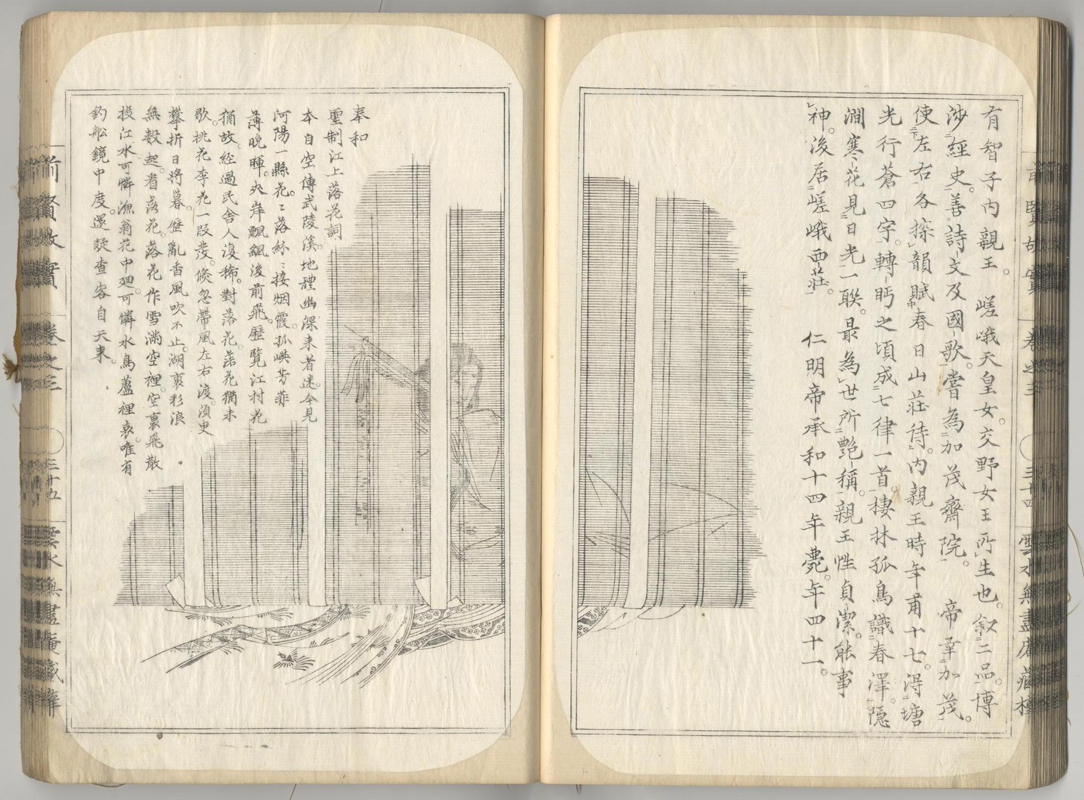 有智子内親王。　嵯峨天皇女。交野女王所生也。叙二品。博
渉經史。善詩文及國歌。嘗為加茂齋院。　帝幸加茂。
使左右各探韻賦春日山莊待。内親王時年甫十七。得塘
光行蒼四字。轉眄之頃成七律一首。棲林孤鳥識春澤。隱
澗寒花見日光一聯。最為世所艷稱。親王性貞潔。能事
神。後居嵯峨西莊。　仁明帝承和十四年薨。年四十一。
前賢故實　卷之三　三十四　雲水無盡庵藏梓
奉和
聖制江上落花詞
本自空傳武陵溪。地體幽深来者迷。今見
河陽一縣花。花落紛紛接烟霞。孤嶼芳菲
薄晚暉。夾岸飄颻後前飛。歴覧江村花
猶故。經過民舎人復稀。對落花。落花獨未
歇。桃花李花一段發。倏忽帶風左右渡。須臾
攀折日将暮。歴亂香風吹不止。湖裏彩浪
無數起。看落花。落花作雪満空裡。空裏飛散
投江水。可憐漁翁花中廻。可憐水鳥蘆裡哀。唯有
釣船鏡中度。還疑查客自天来。
前賢故實　卷之三　三十五　雲水無盡庵藏梓